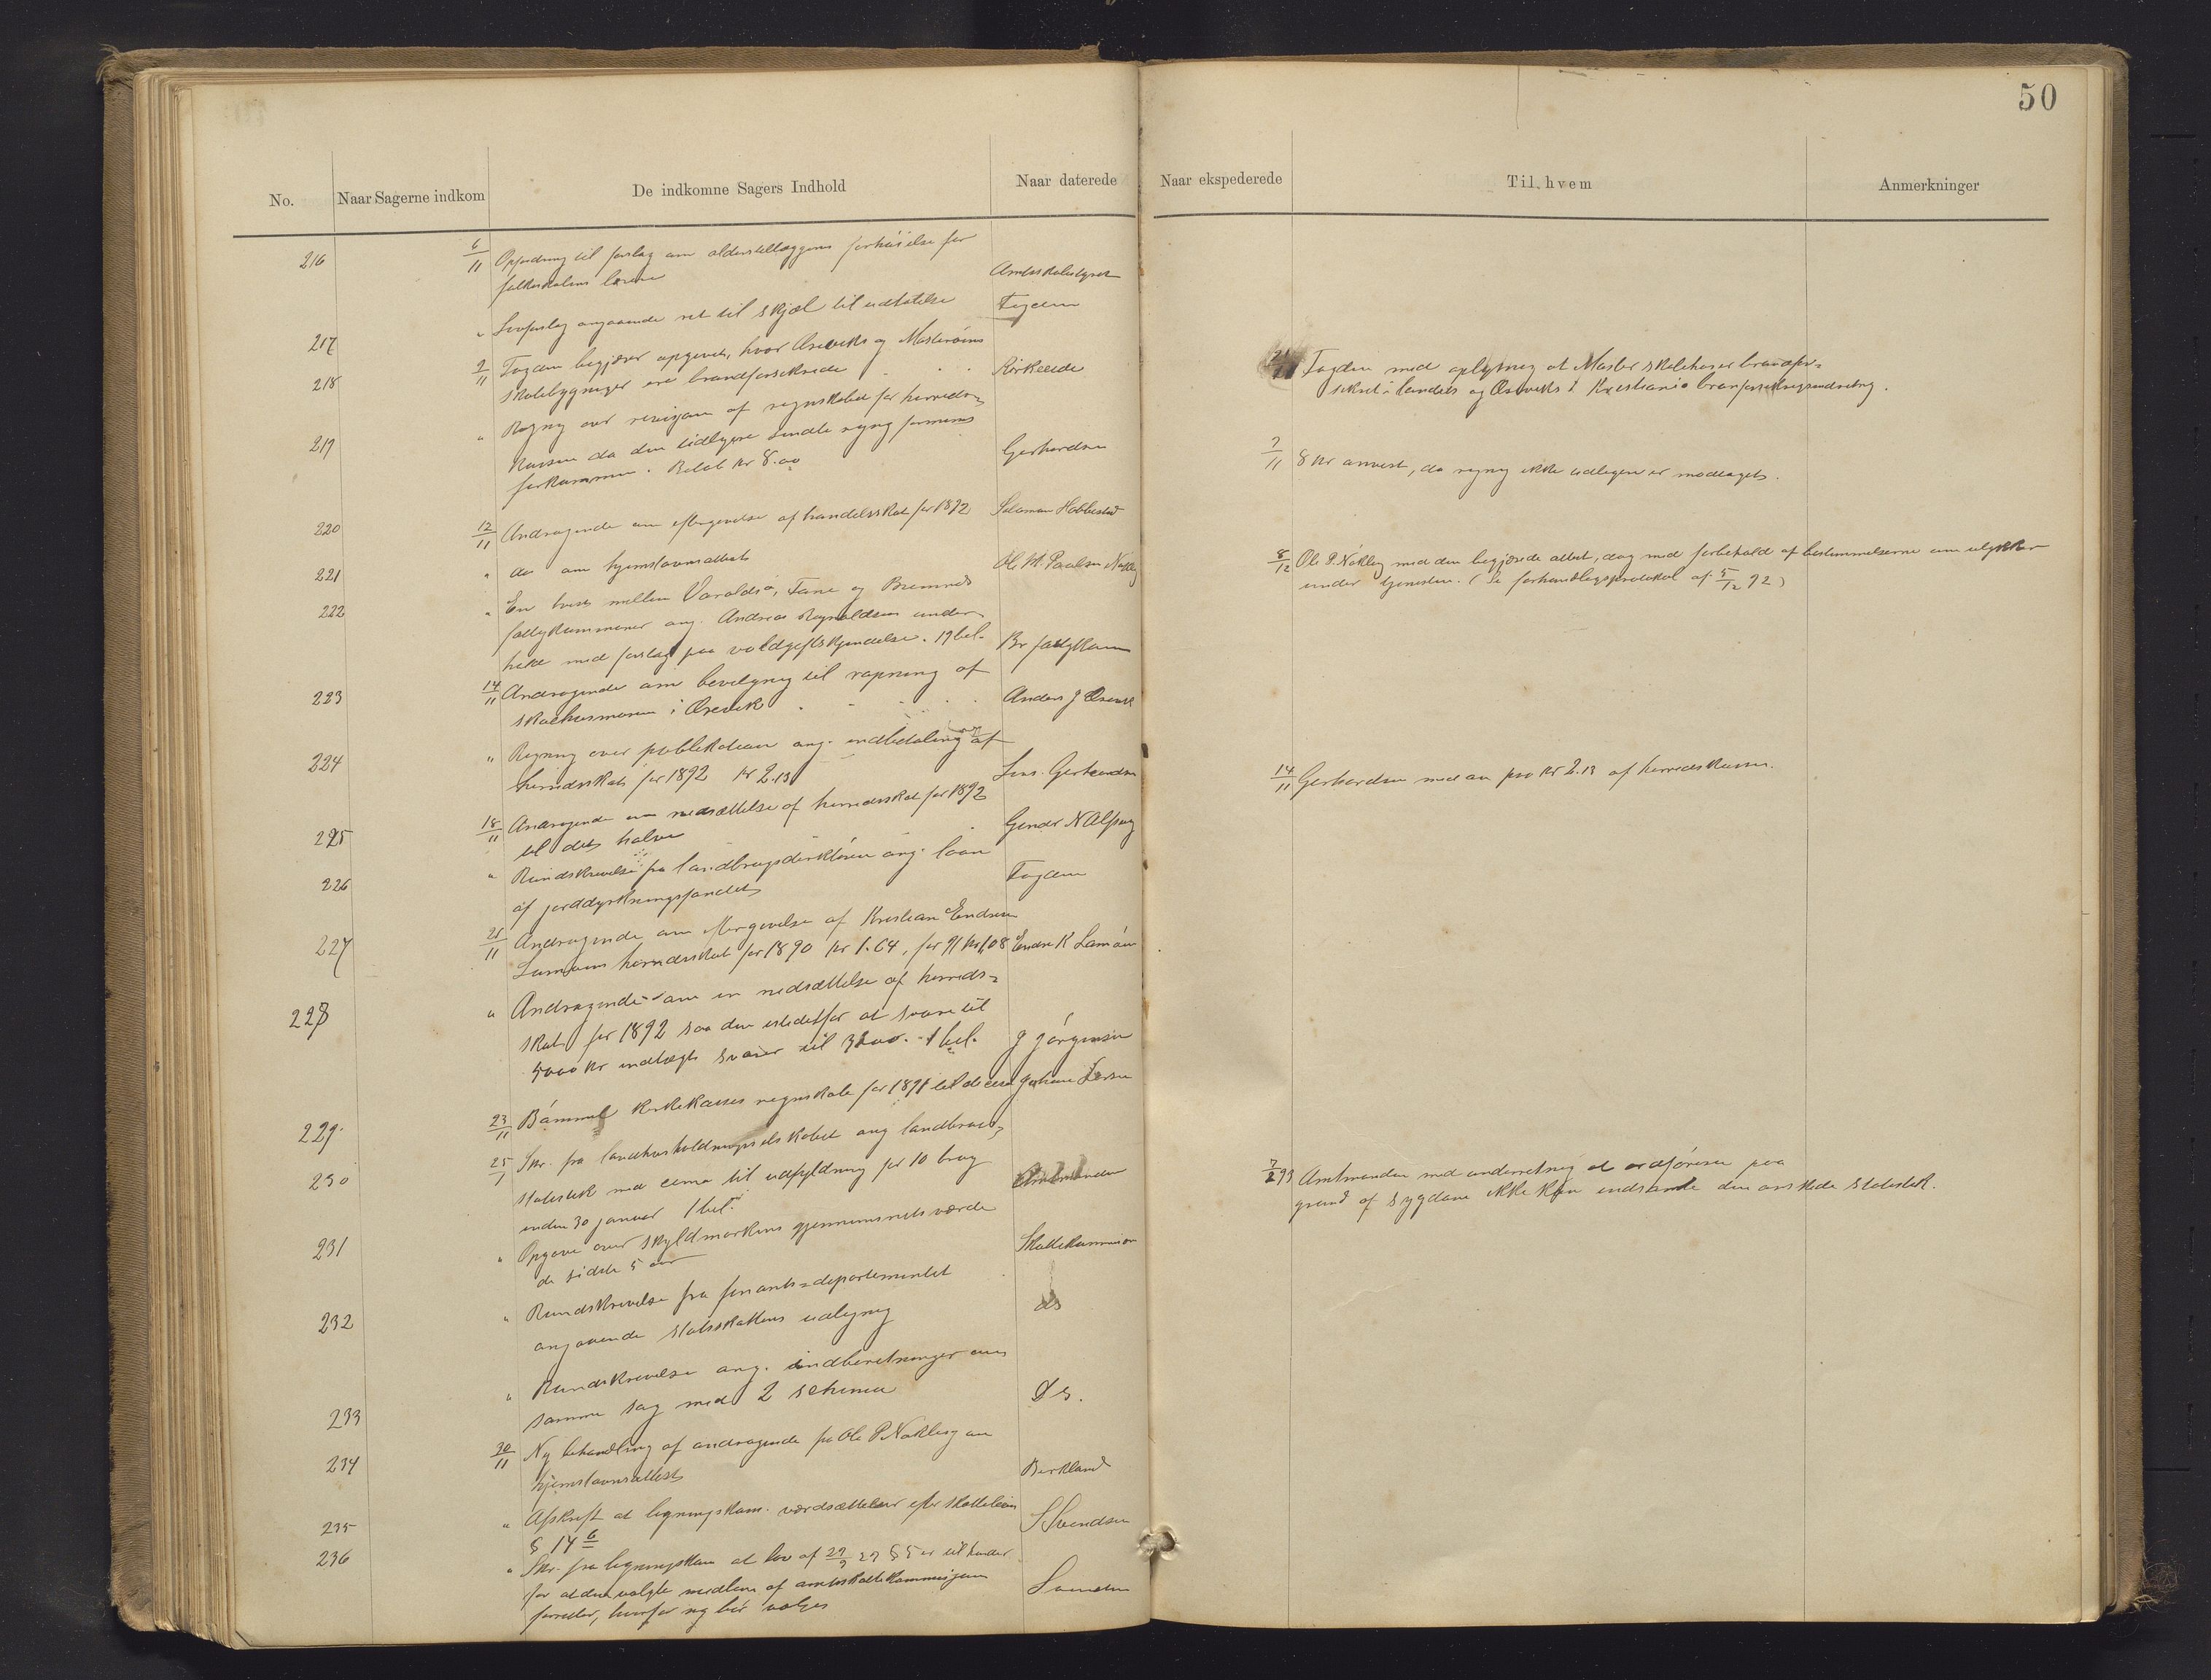 50
No. Naar Sagerne indkom De indkomne Sagers Indhold Naar daterede Naar ekspederede Til hvem Anmerkninger
216 6/11 Opfordring til forslag om alderstillæggenes forhøielse for
folkeskolens lærere Amtsskolestyret
217 " Lovforslag angaaende ret til skjæl til udtalelse Fogden
218 9/11 Fogden begjærer opgivet, hvor Øreviks og Masterøens
skolebygninger ere brandforsikrede . . . Kirkeeide
219 " Regning over revisjon af regnskabet for herreds-
kassen da den tidligere sendte regng formenes
forkommen. Beløb kr 8.00 Gerhardsen
220 12/11 Andragende om eftergivelse af handelsskat for 1892 Salamon Hobbestad
221 " do om hjemstavnsattest Ol. M. Paulsen
222 " En tvist mellem Varaldsø, Fane og Bremnes
fattigkommuner ang. Andreas Reynoldsens under-
hold med forslag paa voldgiftskjendelse. 19 bil. Br fattigkom
223 14/11 Andragende om bevilgning til rapning af
skolehusmuren i Ørevik . - - . Anders J Ørevik
224 " Regning over publikation ang. indbetaling af
herredsskat for 1892 kr 2.13 Lens. Gerhardsen
225 18/11 Andragende om nedsættelse af herredsskat for 1892
til det halve Gunder N Alfsvåg
226 " Rundskrivelse fra landbrugsdirektøren ang. laan
af jorddyrkningsfondet Fogden
227 21/11 Andragende om eftergivelse af Kristian Endresen
Lamøens herredsskat for 1890 kr 1.64, for 91 kr 1,08 Endre K Lamøen
228 " Andragende om en nedsættelse af herreds-
skat for 1892 saa den istedetfor at svare til
5000 kr indtægt svarer til 3200. 1 bil. J Jørgensen
229. 23/11 Bømmel kirkekasses regnskab for 1891 til decision Johan Larsen
230 25/1 Skr. fra landhusholdningsselskabet ang landbrugs-
statistik med cema til udfyldning for 10 brug
inden 30 januar 1 bil. Amtmanden
231 " Opgave over skyldmarkens gjennemsnitsværdi
de sidste 5 aar Skattekommision
232 " Rundskrivelse fra finants-departementet
angaaende statsskattens udligng ds
233 " Rundskrivelse ang. indberetninger om
samme sag med 2 schema Ds.
234 30/11 Ny behandling af andragende fra Ole P. Nøkling om
hjemstavnsattest Birkland
235 " Afskrift at ligningskom. værdsættelser efter skatteloven
§ 14 6 S Svendsen
236 " Skr. fra ligningskom at lov af 29/9 29 § 5 er til hinder
for at den valgte medlem af amtsskattekommisjonen
fungerer, hvorfor ny bør vælges Samme
21/11 Fogden med oplysning at Master skolehus er brandfor-
sikret i landets og Øreviks i Kristiania branforsikringsindretng.
7/11 8 kr anvist, da regng ikke tidligere er modtaget.
8/12 Ole P. Nøkling med den begjærede attest, dog med forbehold af bestemmelserne om ulykker
under tjenesten. (Se forhandlingsprotokol af 5/12 92)
14/11 Gerhardsen med an paa kr 2.13 af herredskassen.
7/2 93 Amtmanden med underretning at ordføreren paa
grund af sygdom ikke kan indsende den ønskede statistik.